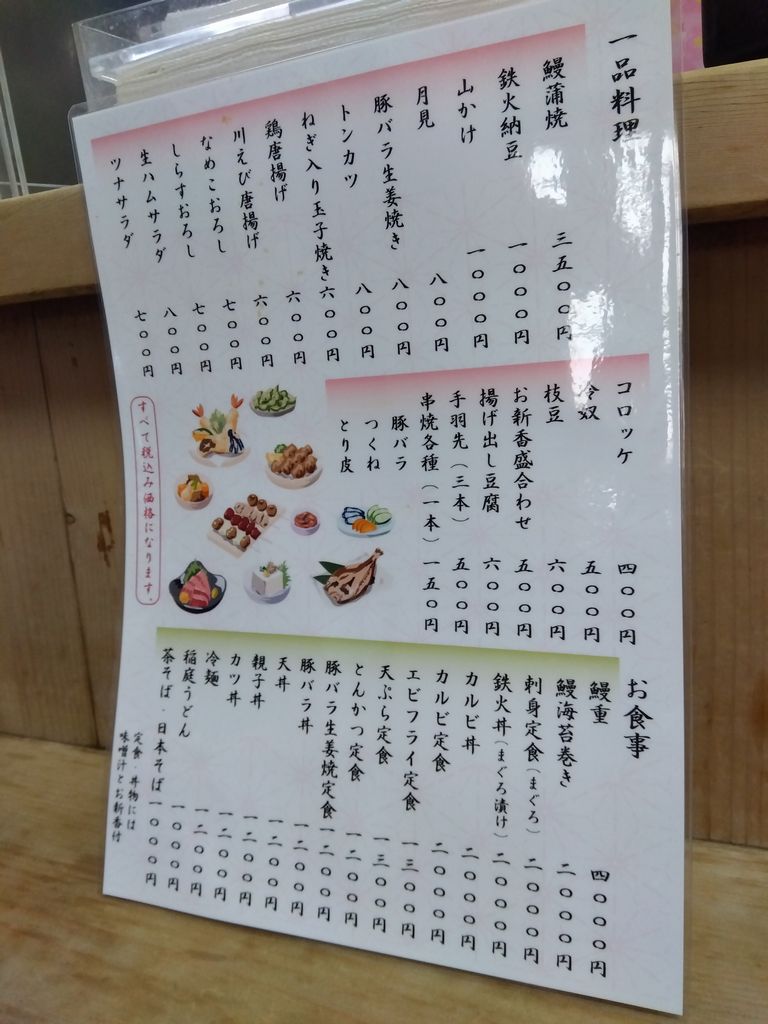 一品料理
鰻蒲焼 三五〇〇円
鉄火納豆 一〇〇〇円
山かけ 一〇〇〇円
月見 八〇〇円
豚バラ生姜焼き 八〇〇円
トンカツ 八〇〇円
ねぎ入り玉子焼き 六〇〇円
鶏唐揚げ 六〇〇円
川えび唐揚げ 六〇〇円
なめこおろし 七〇〇円
しらすおろし 七〇〇円
生ハムサラダ 八〇〇円
ツナサラダ 七〇〇円
コロッケ 四〇〇円
冷奴 五〇〇円
枝豆 六〇〇円
お新香盛合わせ 五〇〇円
揚げ出し豆腐 六〇〇円
手羽先(三本) 五〇〇円
串焼各種(一本) 一五〇円
豚バラ
つくね
とり皮
すべて税込み価格になります。
お食事
鰻重 四〇〇〇円
鰻海苔巻き 二〇〇〇円
刺身定食(まぐろ) 二〇〇〇円
鉄火丼(まぐろ漬け) 二〇〇〇円
カルビ丼 二〇〇〇円
カルビ定食 二〇〇〇円
エビフライ定食 一三〇〇円
天ぷら定食 一三〇〇円
とんかつ定食 一二〇〇円
豚バラ生姜焼定食 一二〇〇円
豚バラ丼 一二〇〇円
天丼 一二〇〇円
親子丼 一二〇〇円
カツ丼 一二〇〇円
冷麺 一二〇〇円
稲庭うどん 一〇〇〇円
茶そば・日本そば 一〇〇〇円
定食・丼物には
味噌汁とお新香付